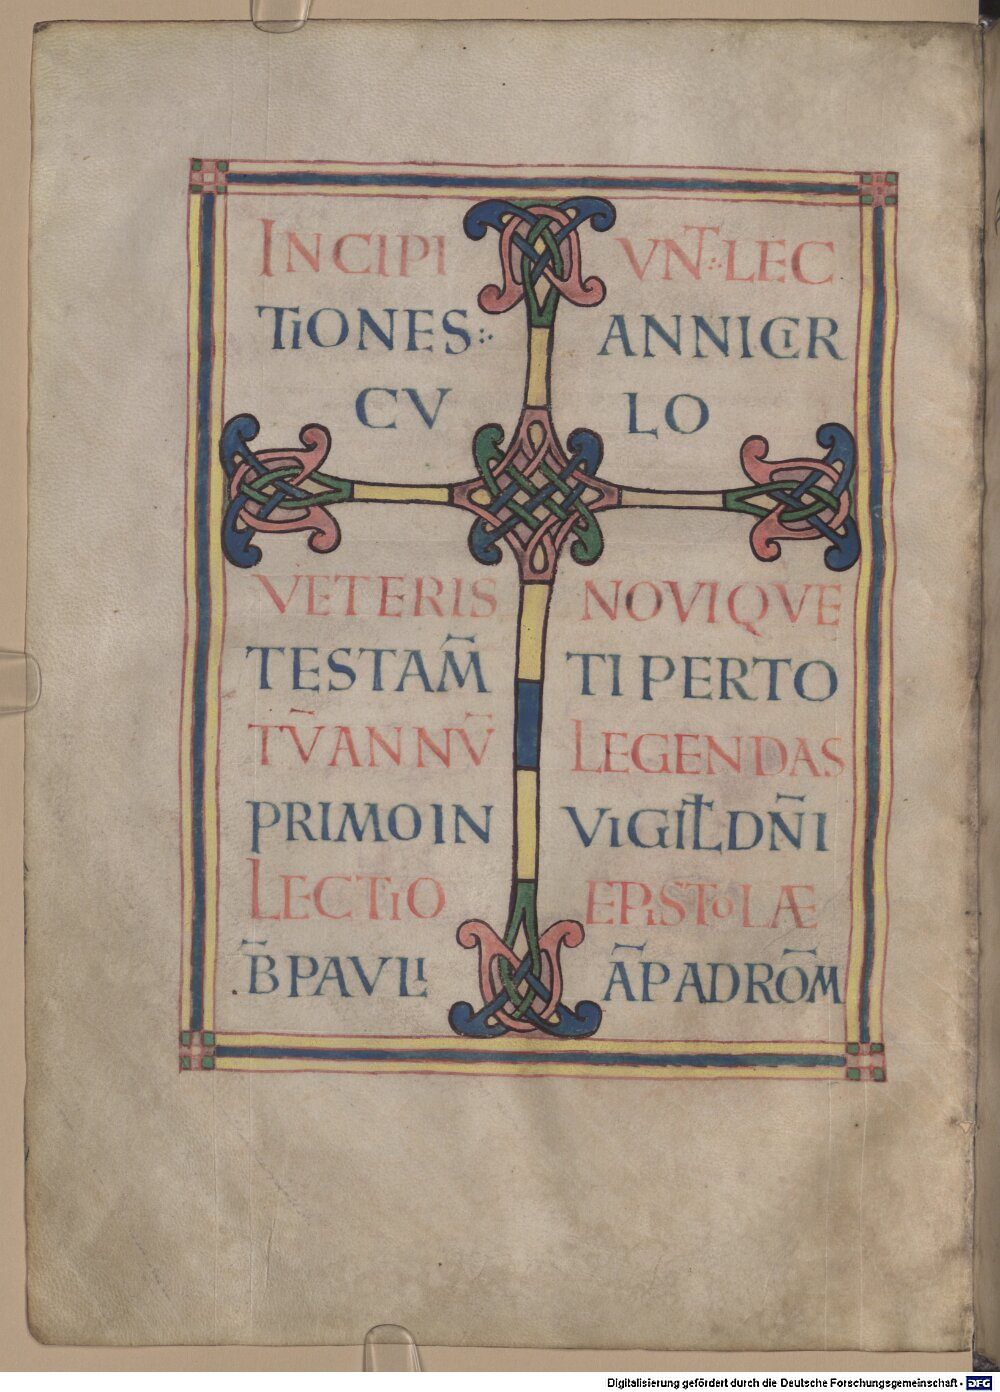 INCIPI VNT:·LEC
TIONES:· ANNI CIR
CV LO
VETERIS NOVIQVE
TESTAM̄ TI PER TO
TV̄ ANNV̄ LEGENDAS
PRIMO IN VIGIL̄ DN̄I
LECTIO EPISTOLÆ
B̄ PAVLI ĀP AD ROM̄
Digitalisierung gefördert durch die Deutsche Forschungsgemeinschaft - DFG